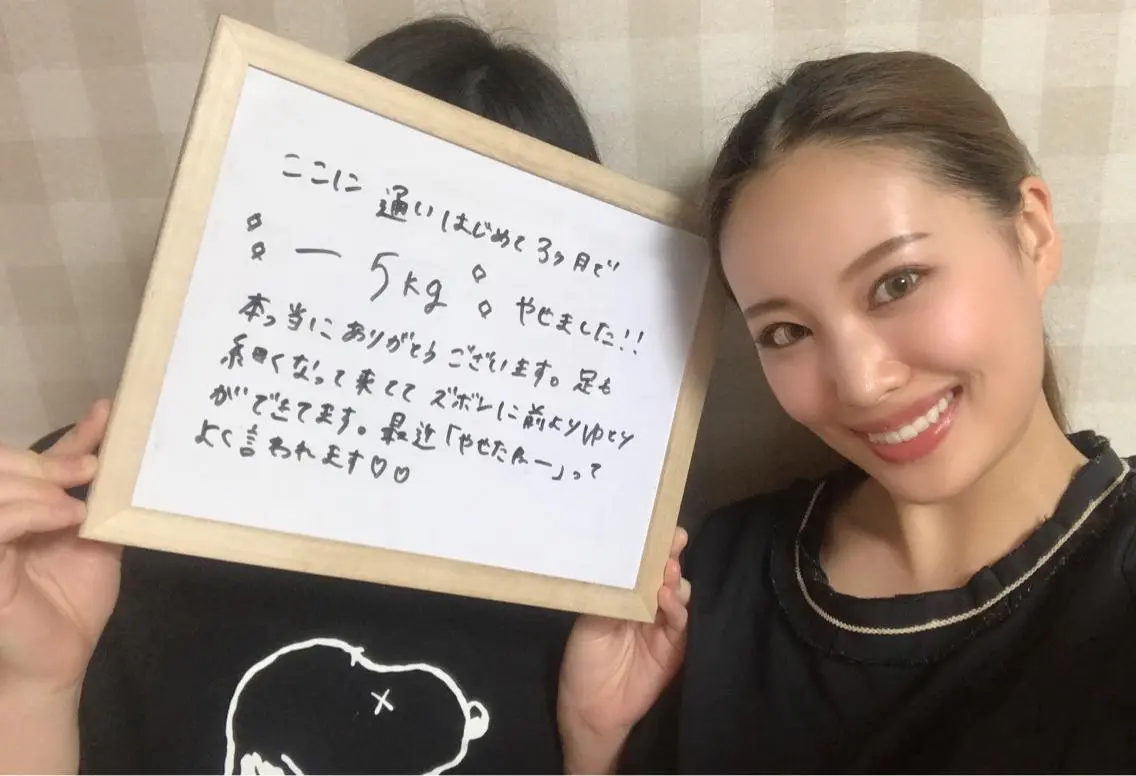 ここに 通いはじめて 3ヶ月で
－5kg やせました!!
本っ当にありがとうございます。足も
細くなって来てて ズボンに前よりゆとり
ができてます。最近「やせたねー」って
よく言われます♡♡